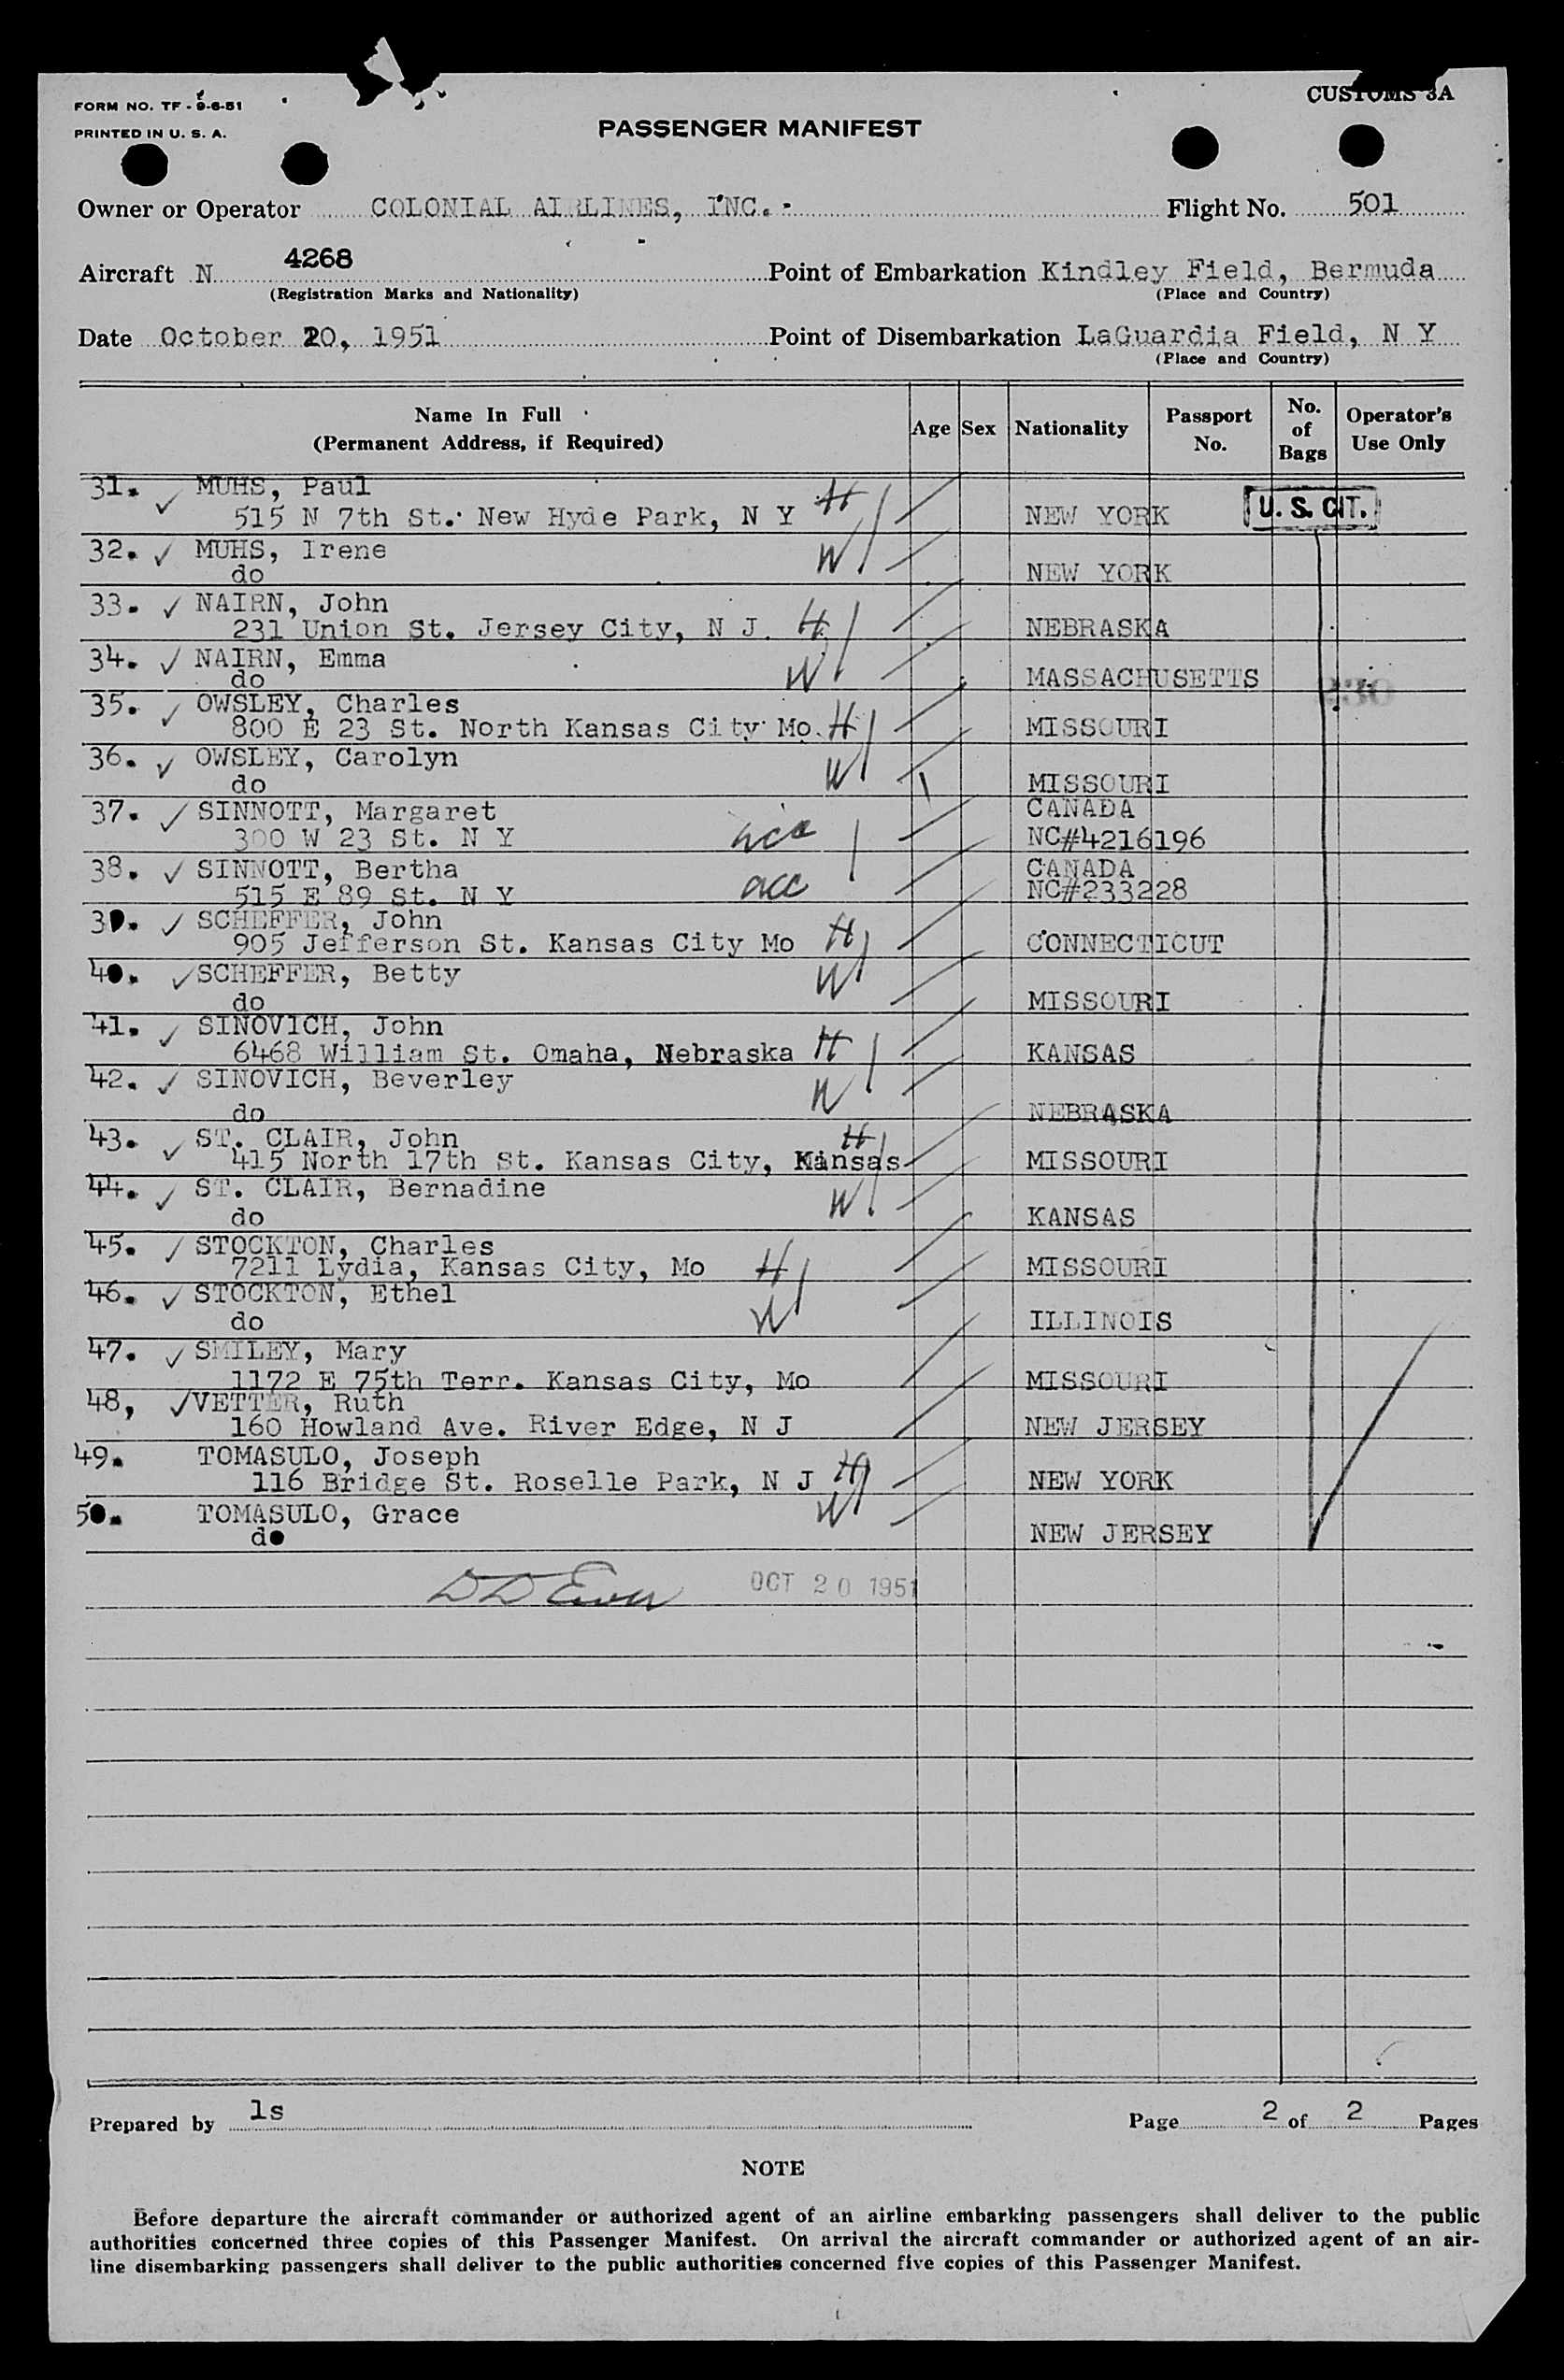 FORM NO. TF - 9-6-51
PRINTED IN U. S. A.
CUSTOMS 3A
PASSENGER MANIFEST
Owner or Operator COLONIAL AIRLINES, INC. Flight No. 501
Aircraft N 4268 Point of Embarkation Kindley Field, Bermuda
(Registration Marks and Nationality) (Place and Country)
Date October 20, 1951 Point of Disembarkation LaGuardia Field, N Y
(Place and Country)
Name In Full (Permanent Address, if Required) Age Sex Nationality Passport No. No. of Bags Operator's Use Only
31. MUHS, Paul H
515 N 7th St. New Hyde Park, N Y NEW YORK U. S. CIT.
32. MUHS, Irene W
do NEW YORK
33. NAIRN, John
231 Union St. Jersey City, N J. H NEBRASKA
34. NAIRN, Emma
do W MASSACHUSETTS 230
35. OWSLEY, Charles
800 E 23 St. North Kansas City Mo. H MISSOURI
36. OWSLEY, Carolyn W
do MISSOURI
37. SINNOTT, Margaret CANADA
300 W 23 St. N Y acc NC#4216196
38. SINNOTT, Bertha CANADA
515 E 89 St. N Y acc NC#233228
39. SCHEFFER, John
905 Jefferson St. Kansas City Mo H CONNECTICUT
40. SCHEFFER, Betty W
do MISSOURI
41. SINOVICH, John
6468 William St. Omaha, Nebraska H KANSAS
42. SINOVICH, Beverley W
do NEBRASKA
43. ST. CLAIR, John H
415 North 17th St. Kansas City, Kansas MISSOURI
44. ST. CLAIR, Bernadine W
do KANSAS
45. STOCKTON, Charles
7211 Lydia, Kansas City, Mo H MISSOURI
46. STOCKTON, Ethel
do W ILLINOIS
47. SMILEY, Mary
1172 E 75th Terr. Kansas City, Mo MISSOURI
48, VETTER, Ruth
160 Howland Ave. River Edge, N J NEW JERSEY
49. TOMASULO, Joseph
116 Bridge St. Roselle Park, N J H NEW YORK
50. TOMASULO, Grace W
do NEW JERSEY
D D OCT 20 1951
Prepared by ls Page 2 of 2 Pages
NOTE
Before departure the aircraft commander or authorized agent of an airline embarking passengers shall deliver to the public
authorities concerned three copies of this Passenger Manifest. On arrival the aircraft commander or authorized agent of an air-
line disembarking passengers shall deliver to the public authorities concerned five copies of this Passenger Manifest.